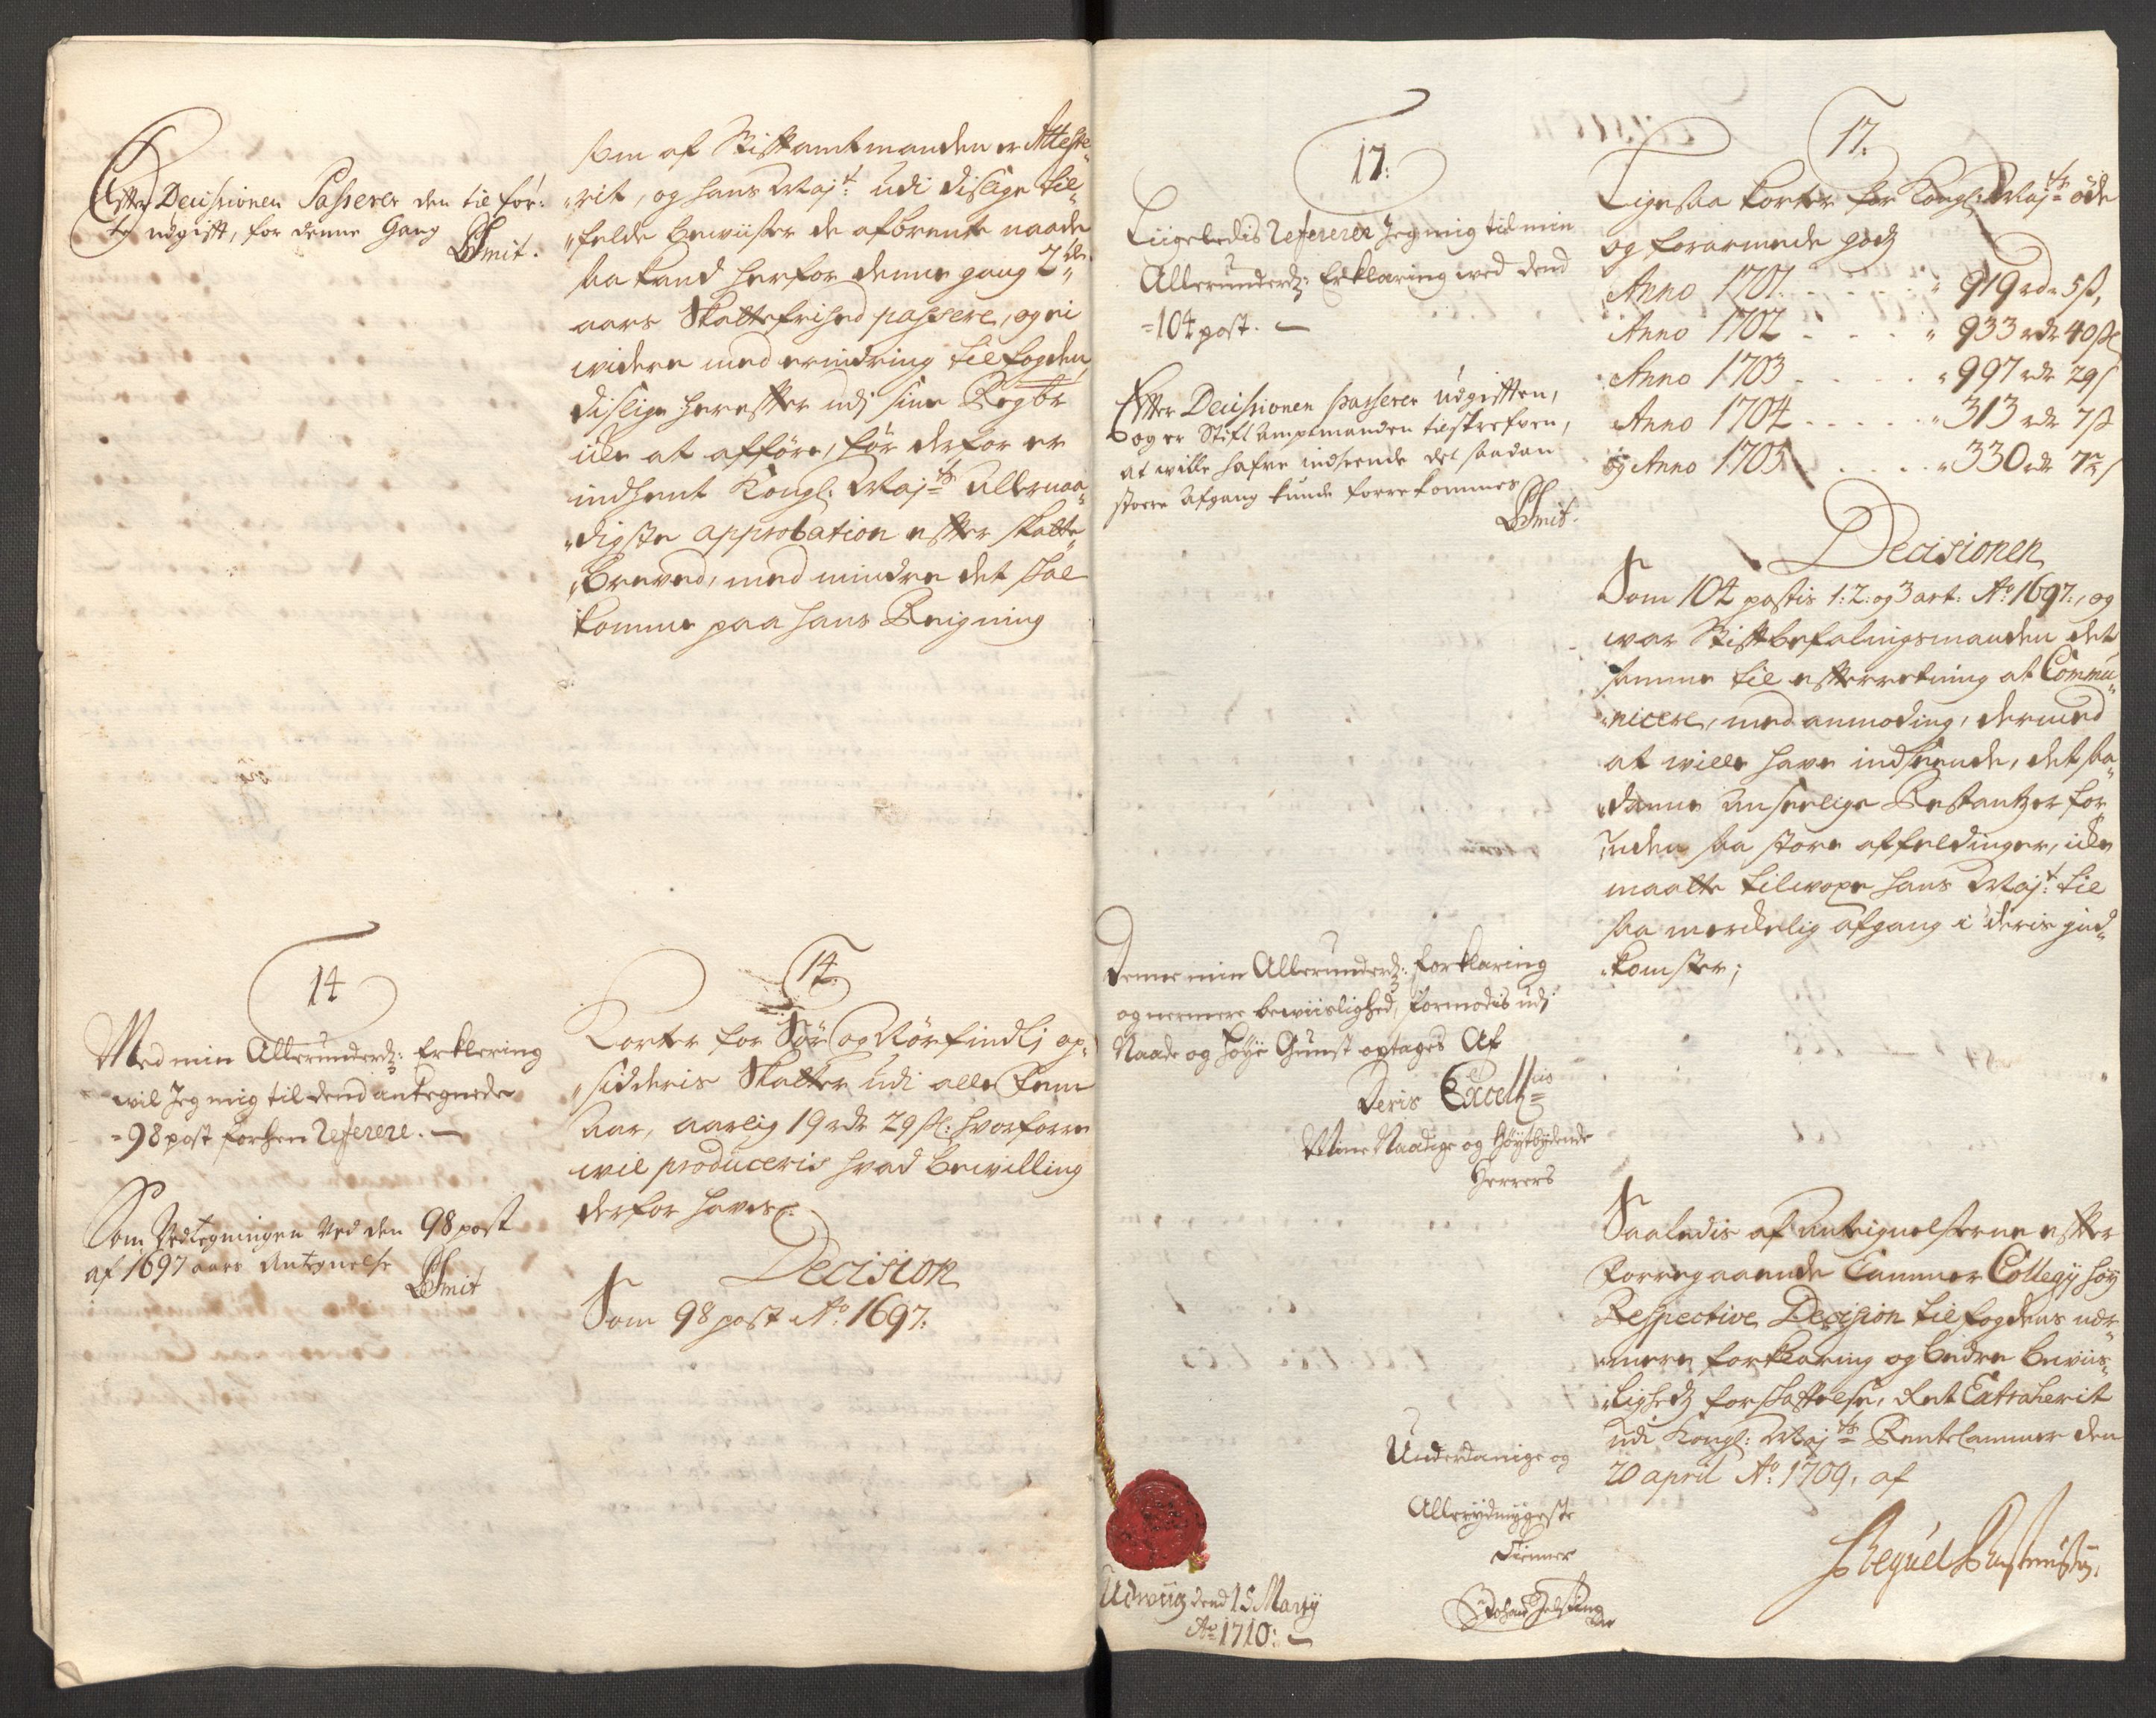 Efter Decisionen Passerer den til før:
te udgift, for denne Gang
LSmit.
som af Stiftamtmanden er Atteste„
„rit, og hans Maj:t udi dislige til„
„felde bevilster de afbrente naade
saa kand herfor denne gang 2de
aars Skattefrihed passere, og ei
widere med erindring til fogden
dislige herefter udj sine Regbr
icke at afføre, før derfor er
indhent Kongl: Maj:ts allernaa„
„digste approbation efter skatte„
„breved, med mindre det skal
komme paa hans Reigning
14
Med min Allerunderd: Erklering
wil Jeg mig til dend antegnede
=98 post forhen Referere.
Som Vedtegningen Ved den 98 post
af 1697 aars Antegnelse
LSmit
14.
Korter for Sør og Nør findlj op„
„sidderis Skatter udi alle Fem
Aar, aarlig 19 rdr 29 sk: hvorforre
wil produceris hvad bewilling
derfor haves.
Decision
Som 98 post Ao: 1697.
17:
Liigeledis Refererer Jeg mig til min
Allerunderd: Erklaring wed dend
=104 post.
Efter Decisionen passerer udgiften,
og er Stift Amptmanden tilskrefven,
at wille hafve indseende det saadan
stoere Afgang kunde forrekommes
LSmit.
Denne min Allerunderd: forklaring
og nermere beviislighed, formodis udj
Naade og høye Gunst optages Af
Deris Excell:iis
Mine Naadige og Høytbydende
Herrers
Underdanige og
Allerydmygeste
Tienner
Johan Gelsting
Udwiig dend 15 Martij
Ao 1710:
17.
Ligesaa korter for Kongl: Maj:ts øde
og forarmede godz
Anno 1701 . . . . „ 919 rdr 5 s,
Anno 1702 . . . „ 933 rdr 40 s
Anno 1703 . . . . „ 997 rdr 29 s
Anno 1704 . . . . . „ 313 rdr 7 s
og Anno 1705 . . . . „ 330 rdr 7 s
Decisionen
Som 104 postis 1: 2: og 3 art: Ao: 1697:, og
war Stiftbefalingsmanden det
samme til efterretning at Commu„
„nicere, med anmoding, dermed
at wille have indseende, det saa„
„danne anseelige Restantzer for
„uden saa store affeldinger, icke
maatte tilwoxe hans Maj:t til
saa merckelig afgang i deris ind„
„komster;
Saaledis af Anteignelserne efter
forregaaende Cammer Collegij høy
Respective Decision til fogdens nær„
„mere forklaring og bedre beviis„
„lighedz forskaffelse, Ret Extraherit
udi Kongl: Maj:ts Rentecammer den
20 april Ao: 1709, af